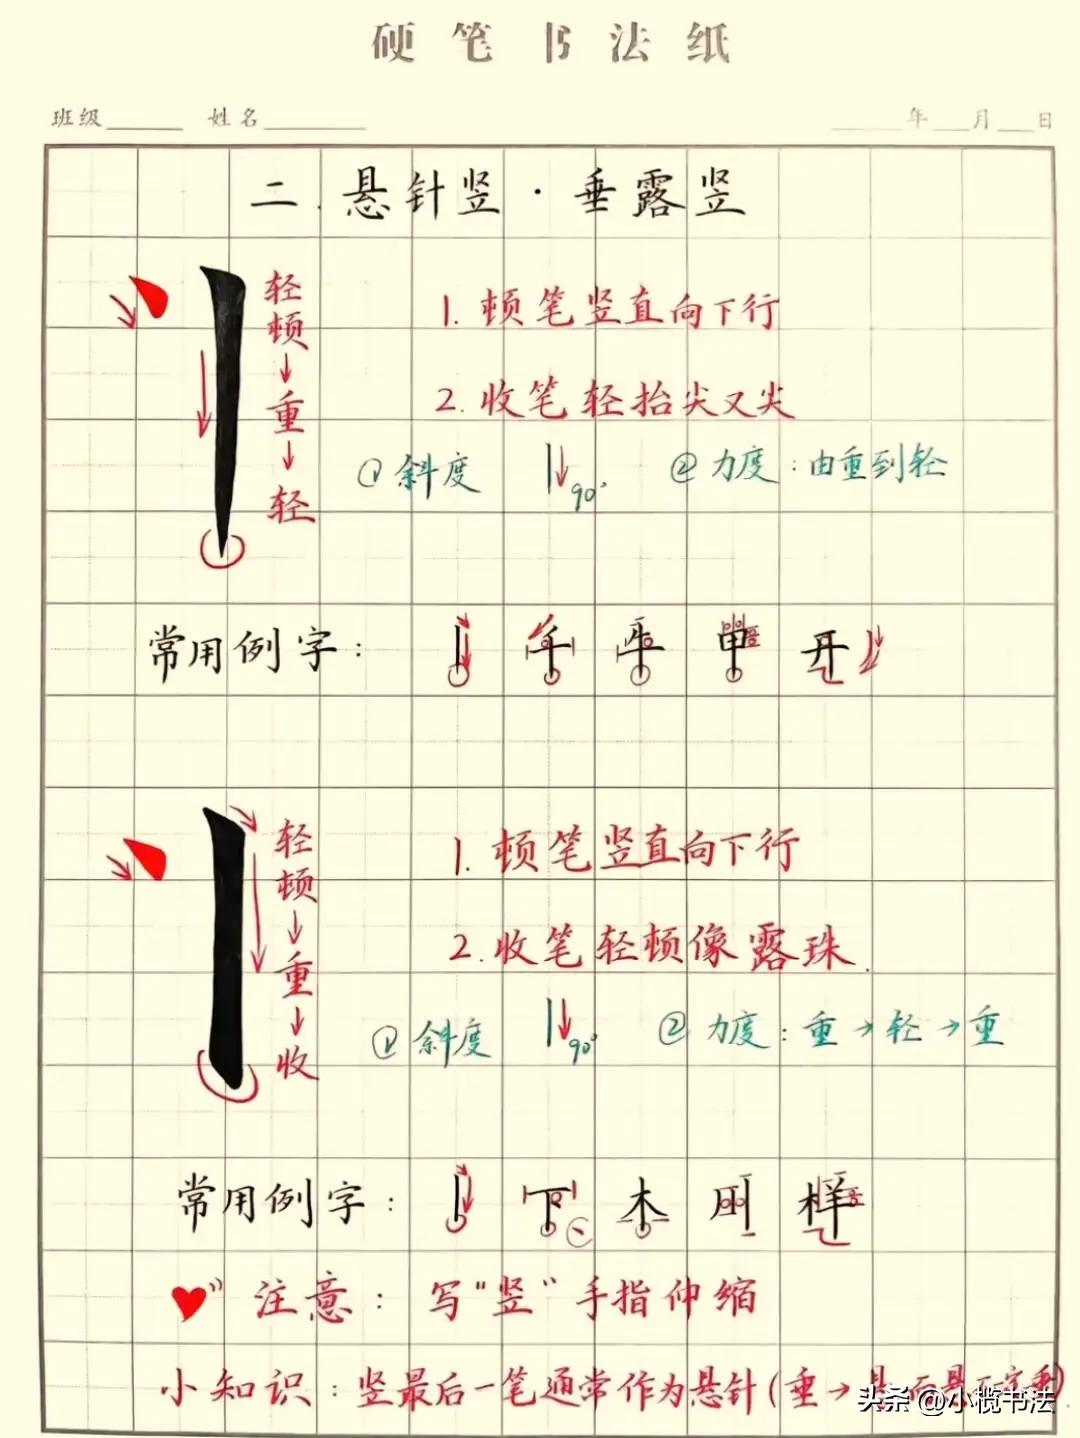 硬笔书法纸
班级 姓名 年 月 日
二.悬针竖·垂露竖
轻顿→重→轻
1.顿笔竖直向下行
2.收笔轻抬尖又尖
①斜度 90° ②力度:由重到轻
常用例字: 千 平 甲 开
轻顿→重→收
1.顿笔竖直向下行
2.收笔轻顿像露珠.
①斜度 90° ②力度:重→轻→重
常用例字: 下 木 用 样
注意:写“竖”手指伸缩
小知识:竖最后一笔通常作为悬针(垂→悬
头条@小榄书法